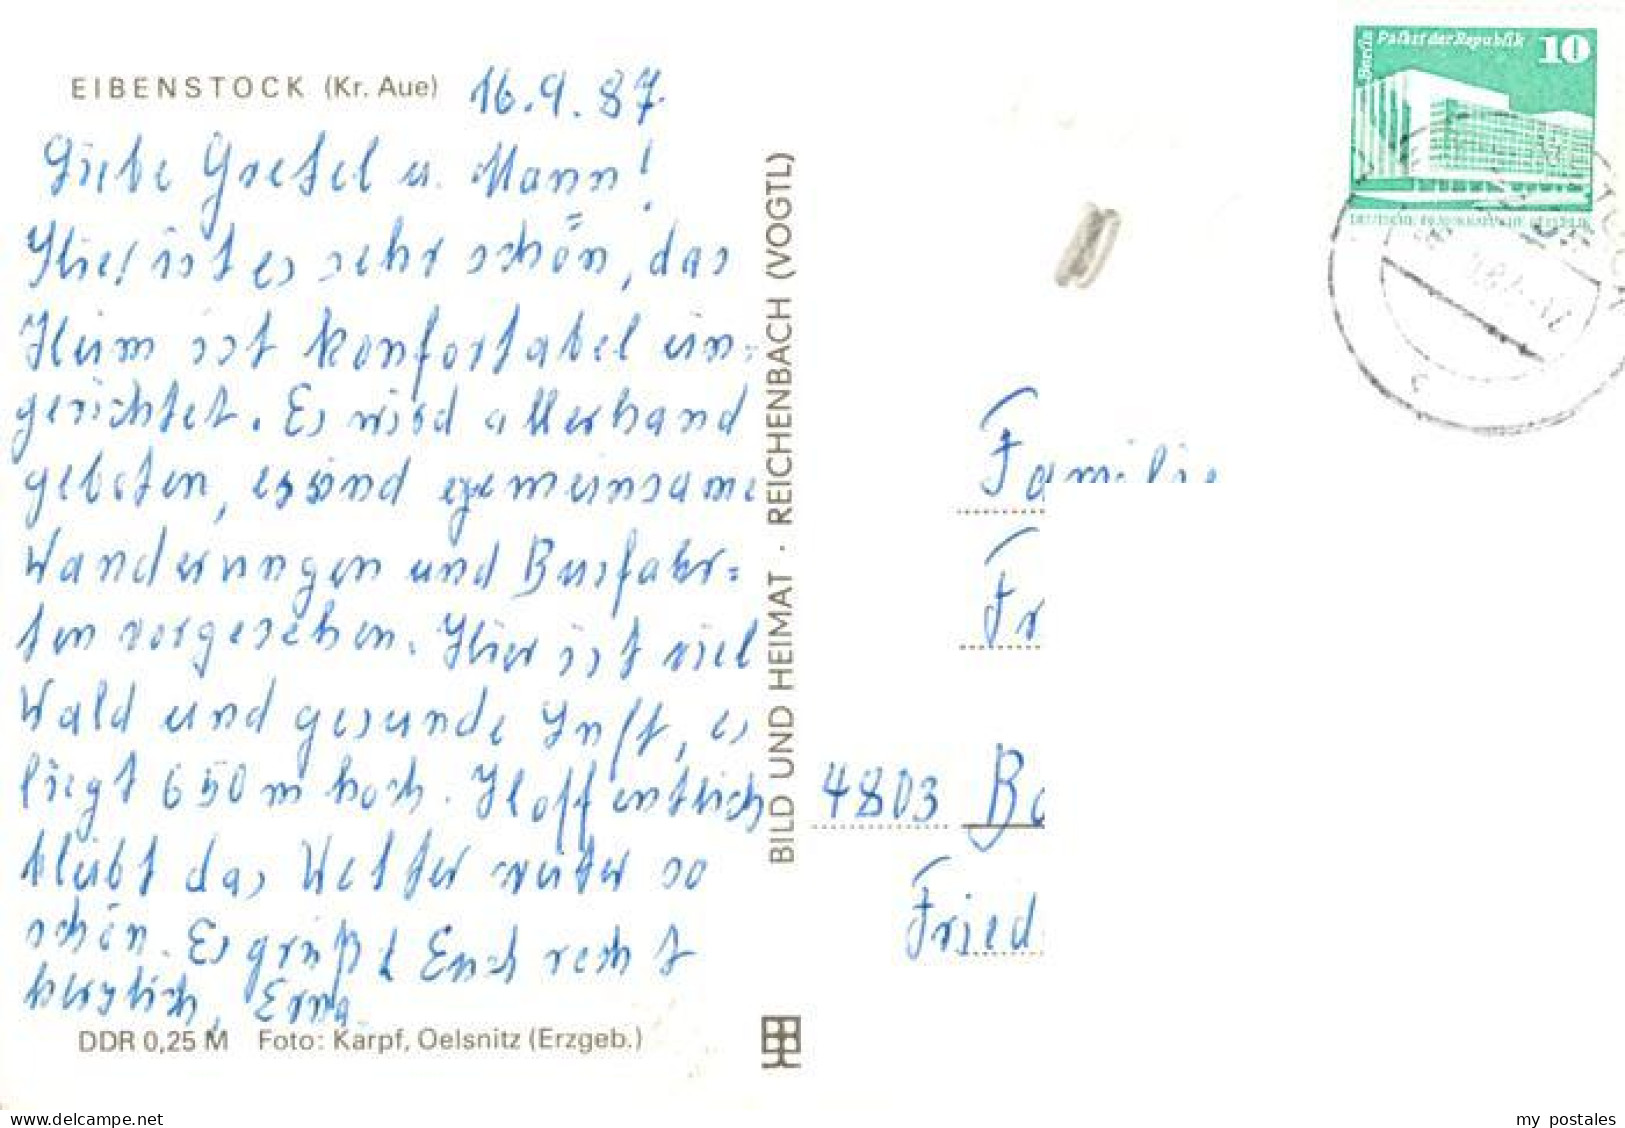 EIBENSTOCK (Kr. Aue) 16.9.87
Liebe Gretel u. Mann!
Hier ist es sehr schön, das
Heim ist konfortabel ein-
gerichtet. Es wird allerhand
geboten, es sind gemeinsame
Wanderungen und Busfahr=
ten vorgesehen. Hier ist viel
Wald und gesunde Luft, es
liegt 650 m hoch. Hoffentlich
bleibt das Wetter weiter so
schön. Es grüßt Euch recht
herzlich, Erna
DDR 0,25 M Foto: Karpf, Oelsnitz (Erzgeb.)
BILD UND HEIMAT · REICHENBACH (VOGTL)
Berlin Palast der Republik 10
DEUTSCHE DEMOKRATISCHE REPUBLIK
Familie
Fr
4803 Ba
Fried
delcampe.net
my_postales